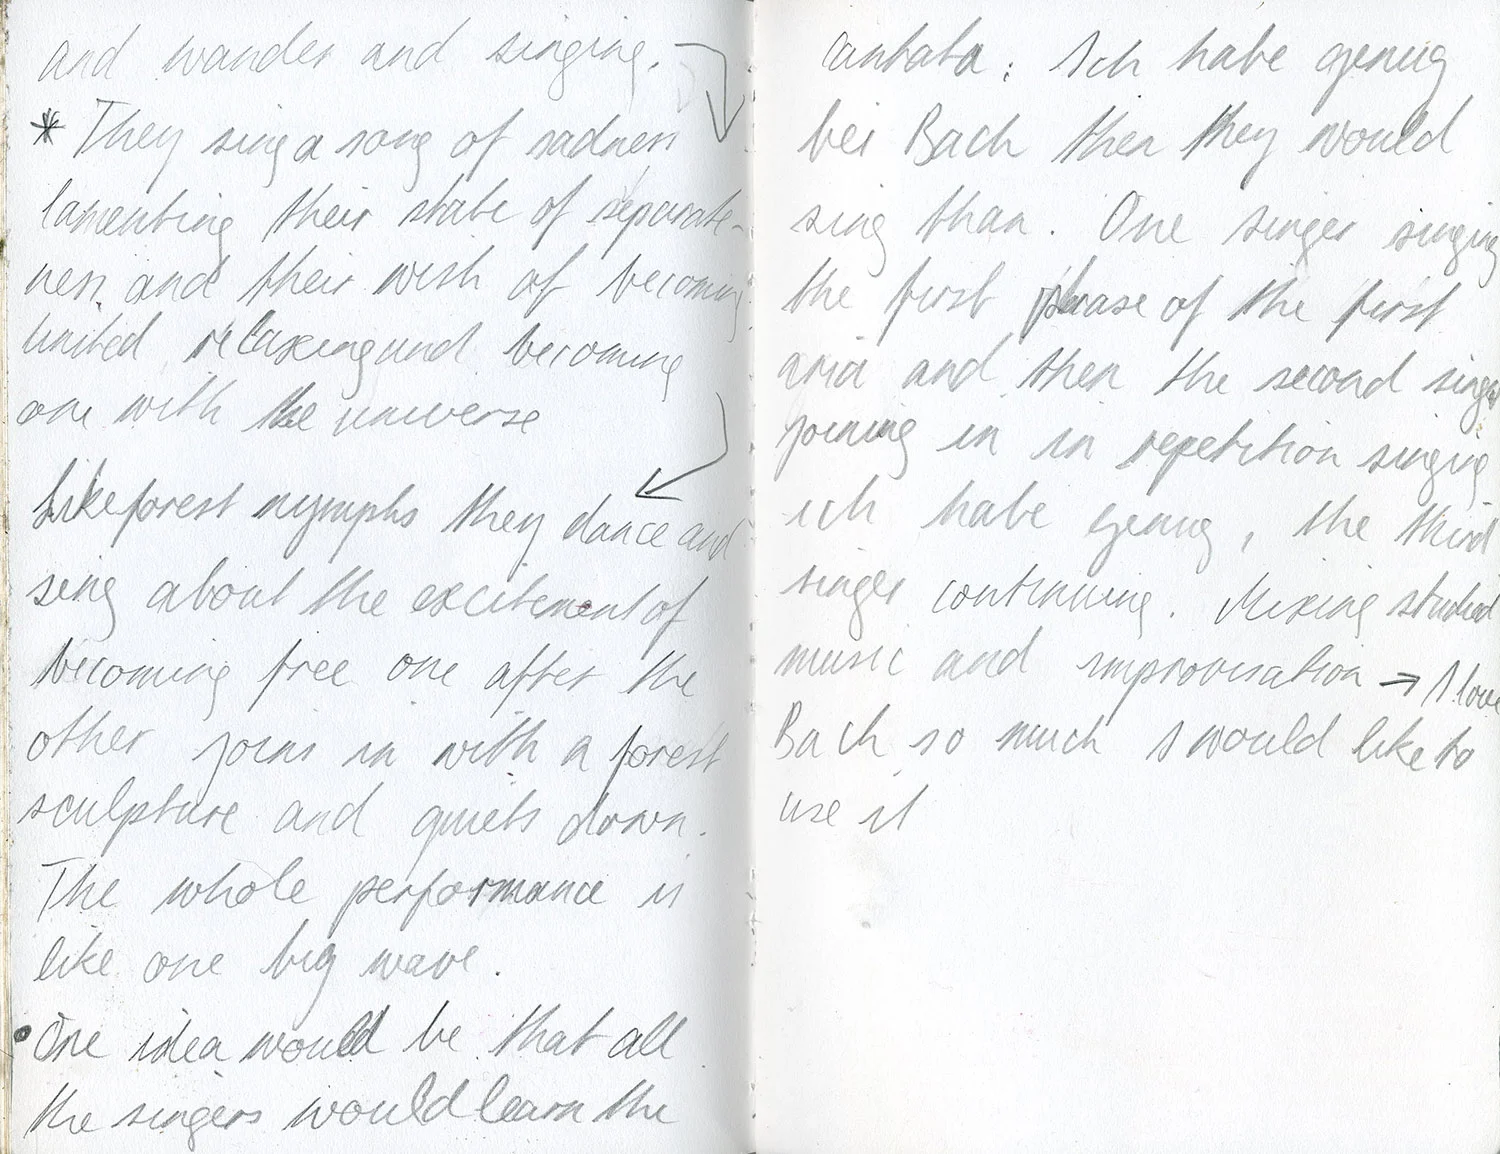 and wander and singing.
* They sing a song of sadness
lamenting their state of separate-
ness and their wish of becoming
united relaxing and becoming
one with the universe
Like forest nymphs they dance and
sing about the excitement of
becoming free one after the
other joins in with a forest
sculpture and quiets down.
The whole performance is
like one big wave.
• One idea would be that all
the singers would learn the
cantata: Ich habe genug
bei Bach then they would
sing than. One singer singing
the first phrase of the first
aria and then the second singer
joining in in repetition singing
ich habe genug, the third
singer continuing. Mixing studied
music and improvisation → I love
Bach so much I would like to
use it